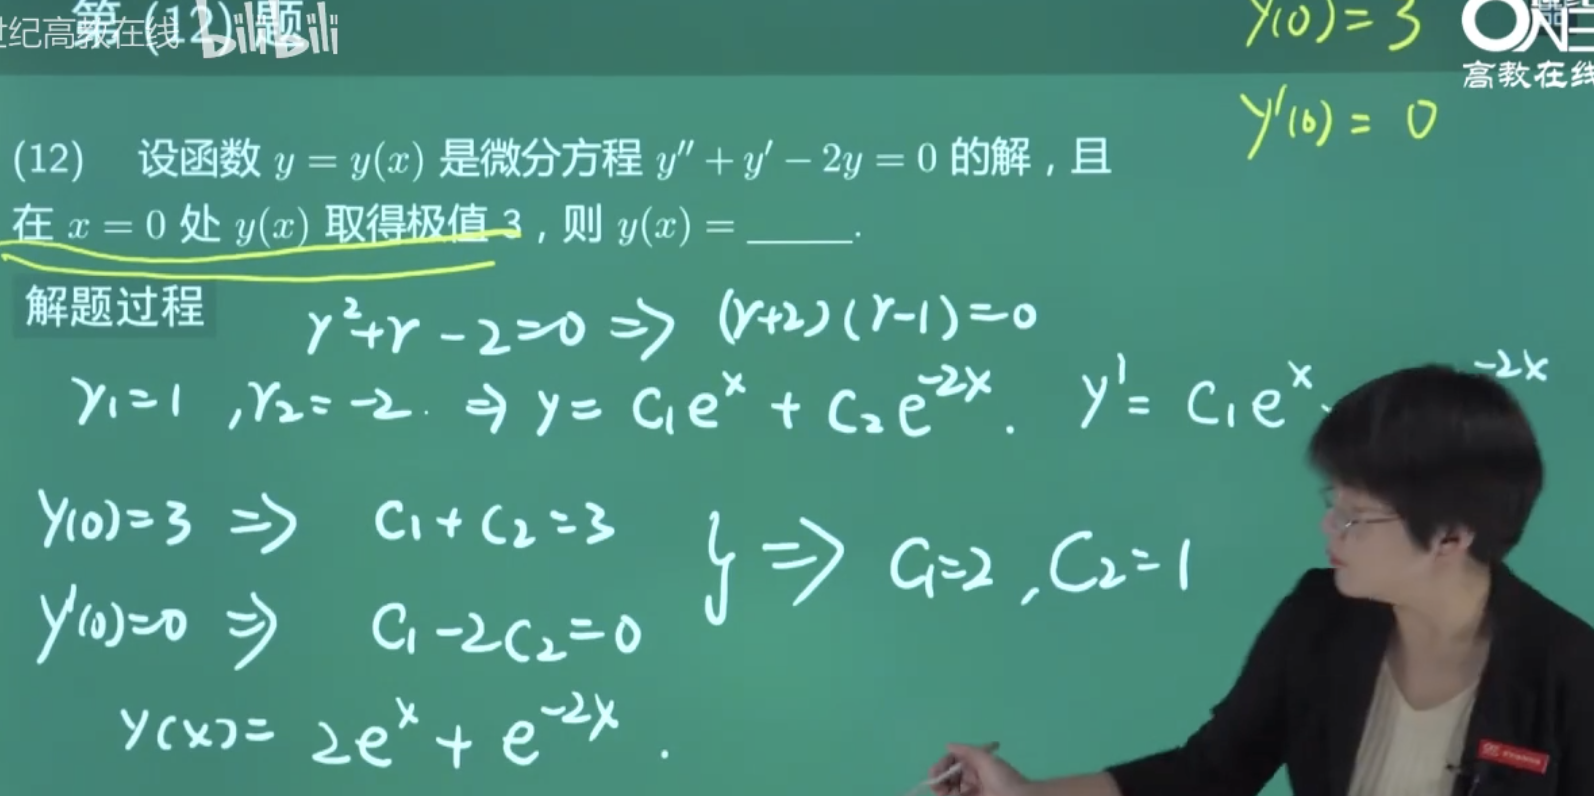 世纪高教在线 bilibili
第 (12) 题
y(0) = 3
高教在线
y'(0) = 0
(12) 设函数 y = y(x) 是微分方程 y″ + y′ − 2y = 0 的解，且
在 x = 0 处 y(x) 取得极值 3，则 y(x) = _____.
解题过程
r²+r-2=0 => (r+2)(r-1)=0
r₁=1 , r₂=-2. => y= C₁eˣ + C₂e⁻²ˣ. y'= C₁eˣ ⁻²ˣ
y(0)=3 => C₁+C₂=3
} => C₁=2 , C₂=1
y'(0)=0 => C₁-2C₂=0
y(x)= 2eˣ + e⁻²ˣ.